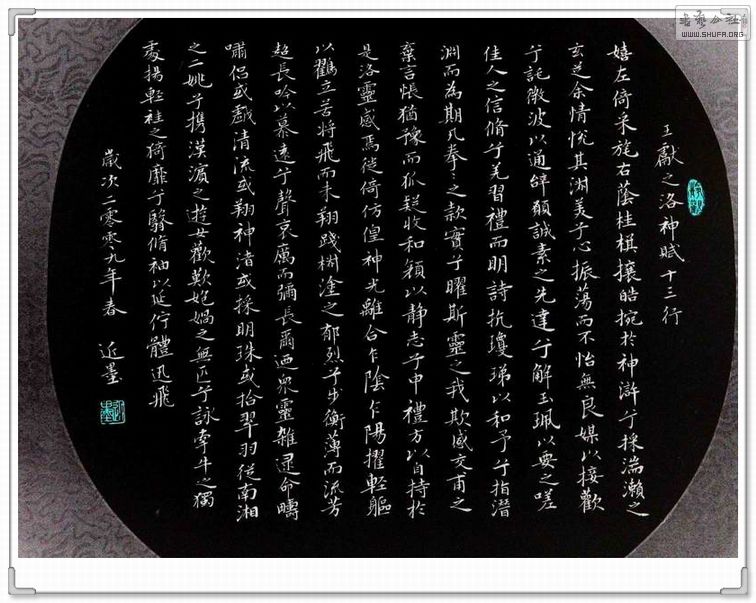 王獻之洛神賦十三行
嬉左倚采旄右蔭桂棋攘皓捥於神滸兮採湍瀨之
玄芝余情悅其淑美兮心振蕩而不怡無良媒以接歡
兮託微波以通辭願誠素之先達兮解玉珮以要之嗟
佳人之信脩兮羌習禮而明詩抗瓊珶以和予兮指潛
淵而為期凡拳〻之款實兮曜斯靈之我欺感交甫之
棄言悵猶豫而狐疑收和顏以靜志兮申禮方以自持於
是洛靈感焉徙倚仿偟神光離合乍陰乍陽擢輕軀
以鶴立若將飛而未翔踐椒塗之郁烈兮步衡薄而流芳
超長吟以慕遠兮聲哀厲而彌長爾迺眾靈雜遝命疇
嘯侶或戲清流或翔神渚或採明珠或拾翠羽從南湘
之二姚兮攜漢濱之遊女歡歎匏媧之無匹兮詠牽牛之獨
處揚輕袿之猗靡兮翳脩袖以延佇體迅飛
歲次二零零九年春 近墨
書藝公社
WWW.SHUFA.ORG